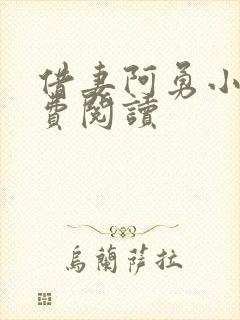 借妻阿勇小
費閱讀
烏蘭薩拉